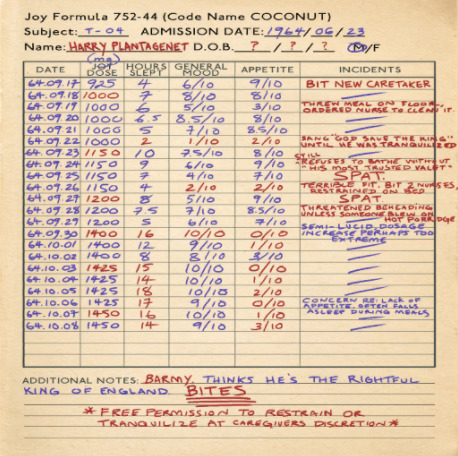 Joy Formula 752-44 (Code Name COCONUT)
Subject: T-04 ADMISSION DATE: 1964/06/23
Name: HARRY PLANTAGENET D.O.B. ? / ? / ? M/F
(mg)
DATE JOY DOSE HOURS SLEPT GENERAL MOOD APPETITE INCIDENTS
64.09.17 925 4 6/10 9/10 BIT NEW CARETAKER
64.09.18 1000 7 8/10 8/10
64.09.19 1000 6 5/10 3/10 THREW MEAL ON FLOOR, ORDERED NURSE TO CLEAN IT.
64.09.20 1000 6.5 8.5/10 8/10
64.09.21 1000 5 7/10 8.5/10
64.09.22 1000 2 1/10 2/10 SANG "GOD SAVE THE KING" UNTIL HE WAS TRANQUILIZED
64.09.23 1150 10 7.5/10 8/10
64.09.24 1151 9 6/10 9/10 STILL REFUSES TO BATHE WITHOUT "HIS MOST TRUSTED VALET"
64.09.25 1150 7 4/10 7/10 SPAT.
64.09.26 1150 4 2/10 2/10 TERRIBLE FIT. BIT 2 NURSES, RESTRAINED ON BED
64.09.27 1200 8 5/10 9/10 SPAT
64.09.28 1200 7.5 7/10 8.5/10 THREATENED BEHEADING UNLESS SOMEONE BLEW ON HOT PORRIDGE
64.09.29 1200 5 6/10 7/10
64.09.30 1400 16 10/10 0/10 SEMI-LUCID, DOSAGE INCREASE PERHAPS TOO EXTREME
64.10.01 1400 12 9/10 1/10
64.10.02 1400 8 8/10 3/10
64.10.03 1425 15 10/10 0/10
64.10.04 1425 14 10/10 1/10
64.10.05 1425 18 10/10 2/10
64.10.06 1425 17 9/10 0/10 CONCERN RE: LACK OF APPETITE. OFTEN FALLS ASLEEP DURING MEALS
64.10.07 1450 16 10/10 1/10
64.10.08 1450 14 9/10 3/10
ADDITIONAL NOTES: BARMY. THINKS HE'S THE RIGHTFUL
KING OF ENGLAND. BITES
* FREE PERMISSION TO RESTRAIN OR
TRANQUILIZE AT CAREGIVERS DISCRETION *